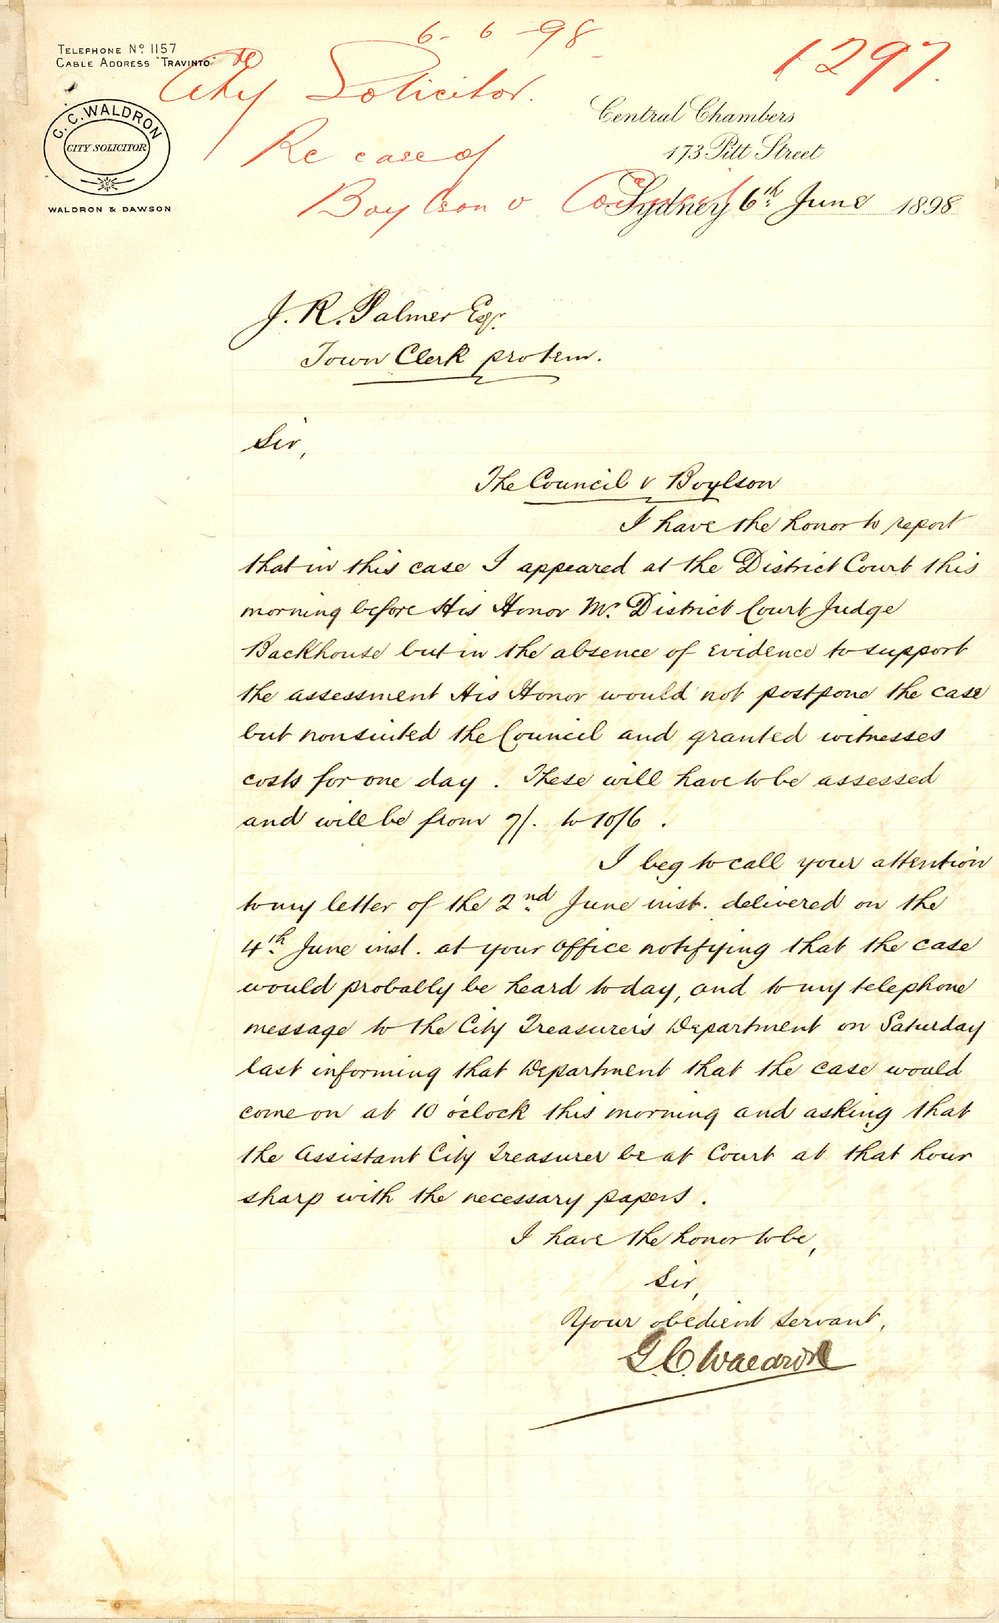 6-6-98
1297.
TELEPHONE No. 1157
CABLE ADDRESS "TRAVINTO"
City Solicitor.
G. C. WALDRON
CITY SOLICITOR
WALDRON & DAWSON
Central Chambers
173 Pitt Street
Re case of
Boylson v Council
Sydney 6th June 1898
J. R. Palmer Esqr.
Town Clerk protem.
Sir,
The Council v Boylson
I have the honor to report
that in this case I appeared at the District Court this
morning before His Honor Mr. District Court Judge
Backhouse but in the absence of evidence to support
the assessment His Honor would not postpone the case
but nonsuited the Council and granted witnesses
costs for one day. These will have to be assessed
and will be from 7/. to 10/6.
I beg to call your attention
to my letter of the 2nd June inst. delivered on the
4th June inst. at your office notifying that the case
would probably be heard today, and to my telephone
message to the City Treasurer's Department on Saturday
last informing that Department that the case would
come on at 10 o'clock this morning and asking that
the Assistant City Treasurer be at Court at that hour
sharp with the necessary papers.
I have the honor to be,
Sir,
Your obedient servant,
G. C. Waldron